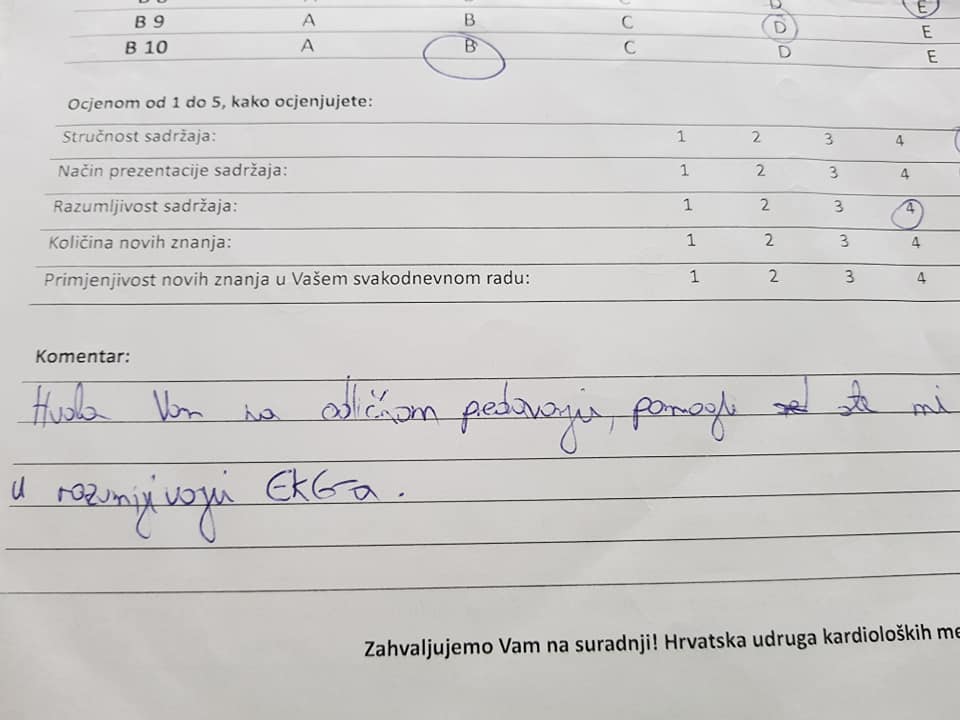 E
B 9 A B C D E
B 10 A B C D E
Ocjenom od 1 do 5, kako ocjenjujete:
Stručnost sadržaja: 1 2 3 4
Način prezentacije sadržaja: 1 2 3 4
Razumljivost sadržaja: 1 2 3 4
Količina novih znanja: 1 2 3 4
Primjenjivost novih znanja u Vašem svakodnevnom radu: 1 2 3 4
Komentar:
Hvala Vam na odličnom predavanju, pomogli ste mi
u razumijevanju EKG-a.
Zahvaljujemo Vam na suradnji! Hrvatska udruga kardioloških me